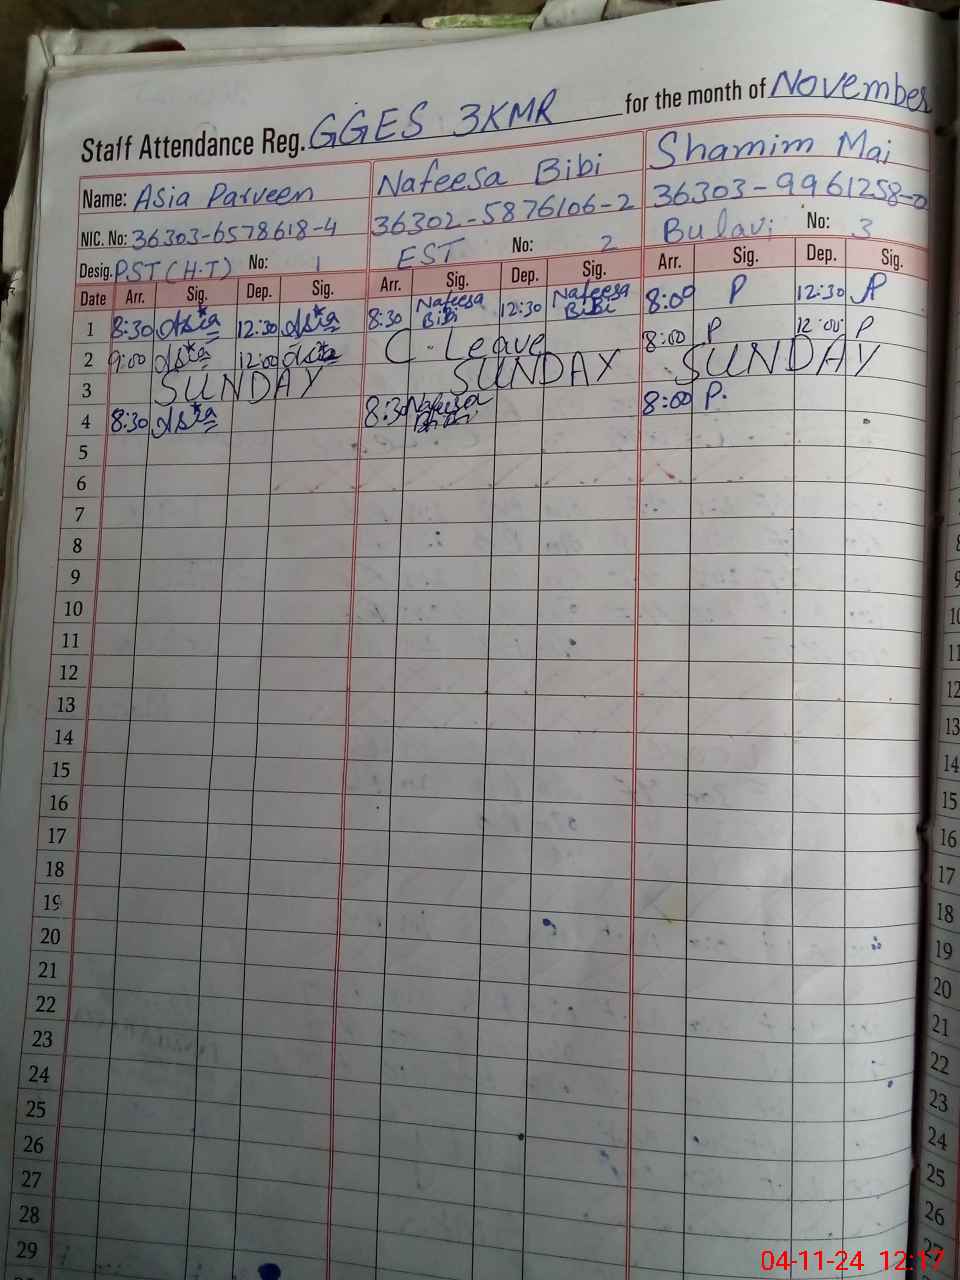 Staff Attendance Reg. GGES 3KMR for the month of November
Name: Asia Parveen Nafeesa Bibi Shamim Mai
NIC. No: 36303-6578618-4 36302-5876106-2 36303-9961258-0
Desig. PST (H.T) No: 1 EST No: 2 Bulavi No: 3
Date Arr. Sig. Dep. Sig. Arr. Sig. Dep. Sig. Arr. Sig. Dep. Sig.
1 8:30 Asia 12:30 Asia 8:30 Nafeesa Bibi 12:30 Nafeesa Bibi 8:00 P 12:30 P
2 9:00 Asia 12:00 Asia C. Leave 8:00 P 12:00 P
3 SUNDAY SUNDAY SUNDAY
4 8:30 Asia 8:30 Nafeesa Bibi 8:00 P.
5
6
7
8
9
10
11
12
13
14
15
16
17
18
19
20
21
22
23
24
25
26
27
28
29
10
11
12
13
14
15
16
17
18
19
20
21
22
23
24
25
26
27
04-11-24 12:17